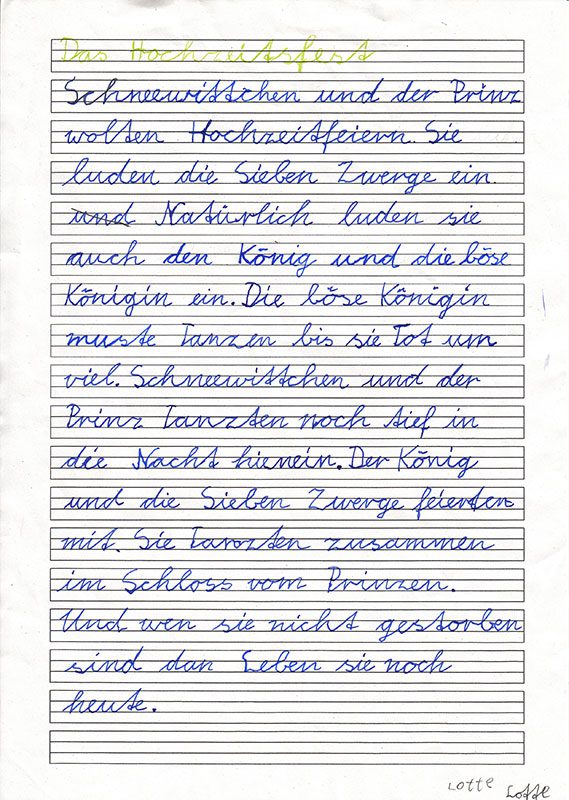 Das Hochzeitsfest
Schneewittchen und der Prinz
wolten Hochzeitfeiern. Sie
luden die Sieben Zwerge ein.
und Natürlich luden sie
auch den König und die böse
Königin ein. Die böse Königin
muste Tanzen bis sie Tot um
viel. Schneewittchen und der
Prinz Tanzten noch tief in
die Nacht hienein. Der König
und die Sieben Zwerge feierten
mit. Sie Tanzten zusammen
im Schloss vom Prinzen.
Und wen sie nicht gestorben
sind dan Leben sie noch
heute.
Lotte Lotte